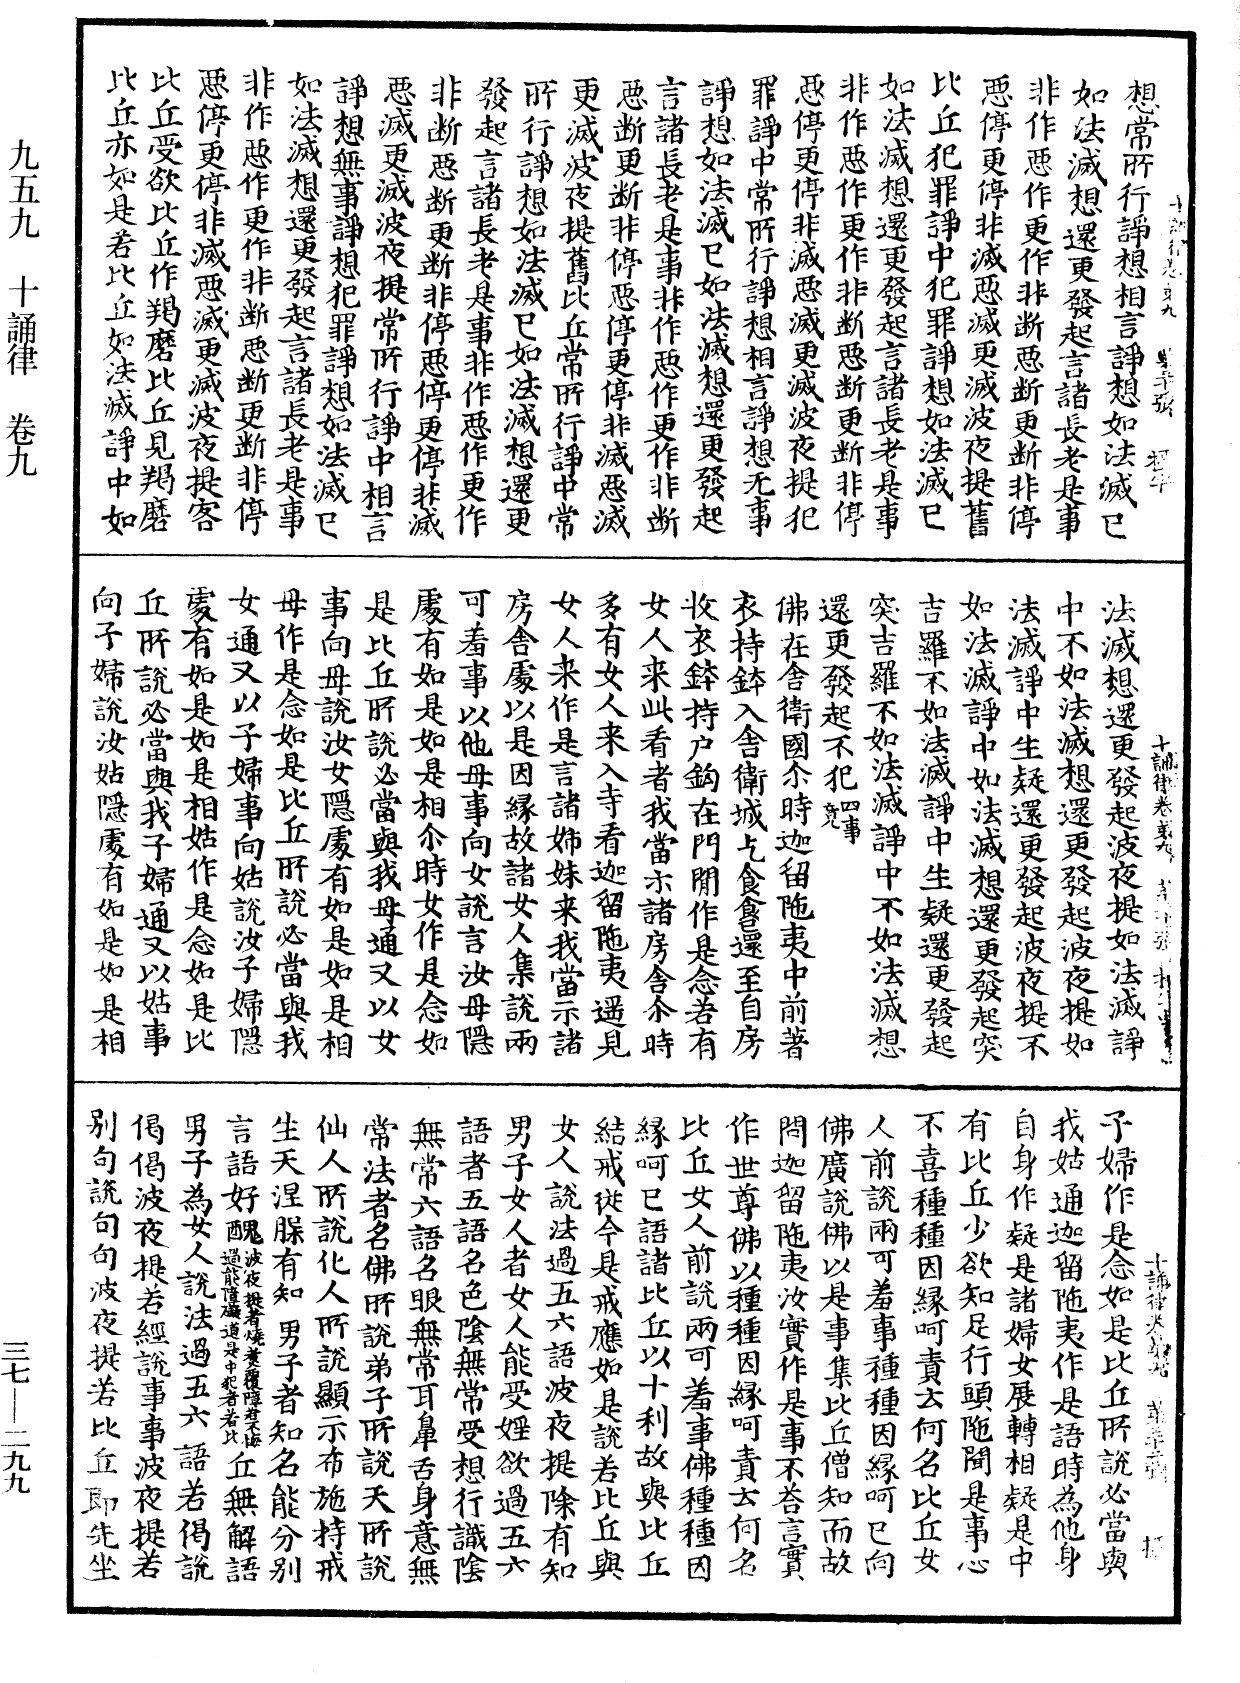 想常所行諍想相言諍想如法滅已
如法滅想還更發起言諸長老是事
非作惡作更作非断惡断更断非停
惡停更停非滅惡滅更滅波夜提舊
比丘犯罪諍中犯罪諍想如法滅已
如法滅想還更發起言諸長老是事
非作惡作更作非断惡断更断非停
惡停更停非滅惡滅更滅波夜提犯
罪諍中常所行諍想相言諍想无事
諍想如法滅已如法滅想還更發起
言諸長老是事非作惡作更作非断
惡断更断非停惡停更停非滅惡滅
更滅波夜提舊比丘常所行諍中常
所行諍想如法滅已如法滅想還更
發起言諸長老是事非作惡作更作
非断惡断更断非停惡停更停非滅
惡滅更滅波夜提常所行諍中相言
諍想無事諍想犯罪諍想如法滅已
如法滅想還更發起言諸長老是事
非作惡作更作非断惡断更断非停
惡停更停非滅惡滅更滅波夜提客
比丘受欲比丘作羯磨比丘見羯磨
比丘亦如是若比丘如法滅諍中如
法滅想還更發起波夜提如法滅諍
中不如法滅想還更發起波夜提如
法滅諍中生疑還更發起波夜提不
如法滅諍中如法滅想還更發起突
吉羅不如法滅諍中生疑還更發起
突吉羅不如法滅諍中不如法滅想
還更發起不犯四事竟
佛在舍衛國尒時迦留陁夷中前著
衣持鉢入舍衛城乞食食還至自房
收衣鉢持户鈎在門閒作是念若有
女人来此看者我當示諸房舍尒時
多有女人来入寺看迦留陁夷遥見
女人来作是言諸姊妹来我當示諸
房舍處以是因縁故諸女人集說兩
可羞事以他母事向女說言汝母隱
處有如是如是相尒時女作是念如
是比丘所說必當與我母通又以女
事向母說汝女隱處有如是如是相
母作是念如是比丘所說必當與我
女通又以子婦事向姑說汝子婦隱
處有如是如是相姑作是念如是比
丘所說必當與我子婦通又以姑事
向子婦說汝姑隱處有如是如是相
子婦作是念如是比丘所說必當與
我姑通迦留陁夷作是語時為他身
自身作疑是諸婦女展轉相疑是中
有比丘少欲知足行頭陁聞是事心
不喜種種因縁呵責云何名比丘女
人前說兩可羞事種種因縁呵已向
佛廣說佛以是事集比丘僧知而故
問迦留陁夷汝實作是事不荅言實
作世尊佛以種種因縁呵責云何名
比丘女人前說兩可羞事佛種種因
縁呵已語諸比丘以十利故與比丘
結戒從今是戒應如是說若比丘與
女人說法過五六語波夜提除有知
男子女人者女人能受婬欲過五六
語者五語名色陰無常受想行識陰
無常六語名眼無常耳鼻舌身意無
常法者名佛所說弟子所說天所說
仙人所說化人所說顯示布施持戒
生天涅槃有知男子者知名能分別
言語好醜波夜提者燒煑覆障若不悔過能障礙道是中犯者若比丘無解語
男子為女人說法過五六語若偈說
偈偈波夜提若經說事事波夜提若
別句說句句波夜提若比丘即先坐
九五九 十誦律 卷九
三七—二九九